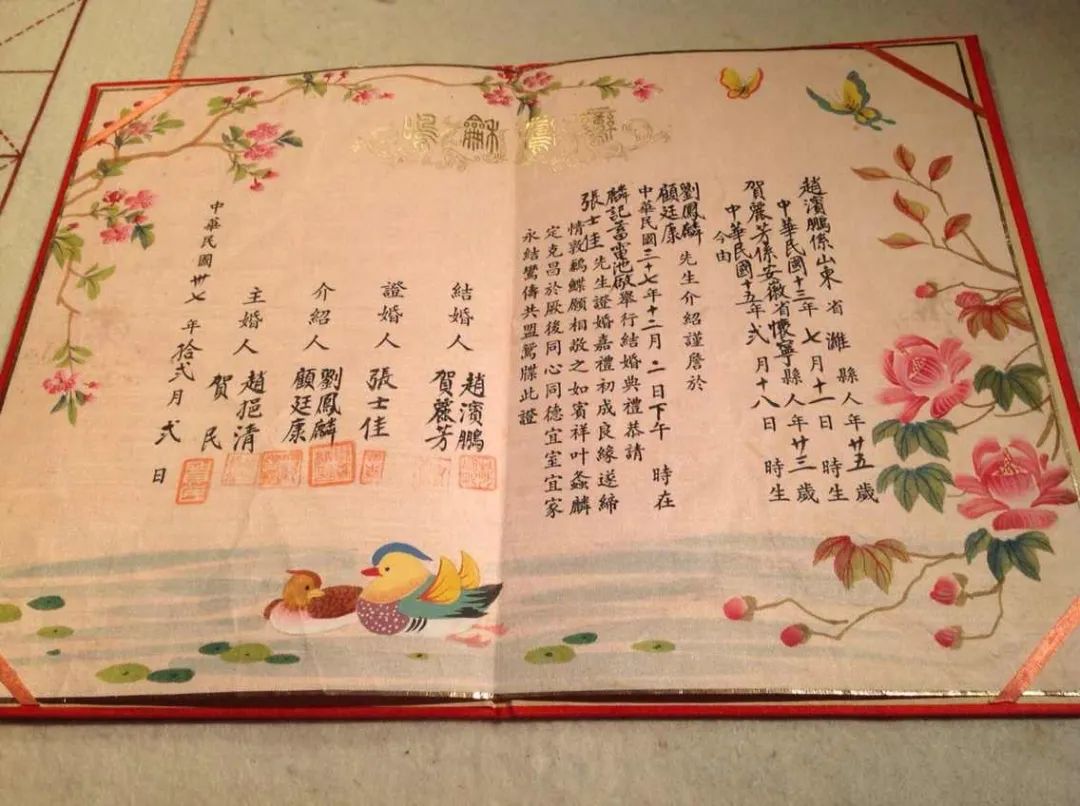 鸞鳳龢鳴
趙濱鵬係山東省濰縣人年廿五歲
中華民國十三年七月十一日時生
賀麗芳係安徽省懷寧縣人年廿三歲
中華民國十五年弍月十八日時生
今由
劉鳳麟
顧廷康先生介紹謹詹於
中華民國三十七年十二月二日下午時在
麟記蓄電池廠舉行結婚典禮恭請
張士佳先生證婚嘉禮初成良緣遂締
情敦鶼鰈願相敬之如賓祥叶螽麟
定克昌於厥後同心同德宜室宜家
永結鸞儔共盟鴛牒此證
結婚人趙濱鵬
賀麗芳
證婚人張士佳
介紹人劉鳳麟
顧廷康
主婚人趙挹清
賀民
中華民國卅七年拾弍月弍日